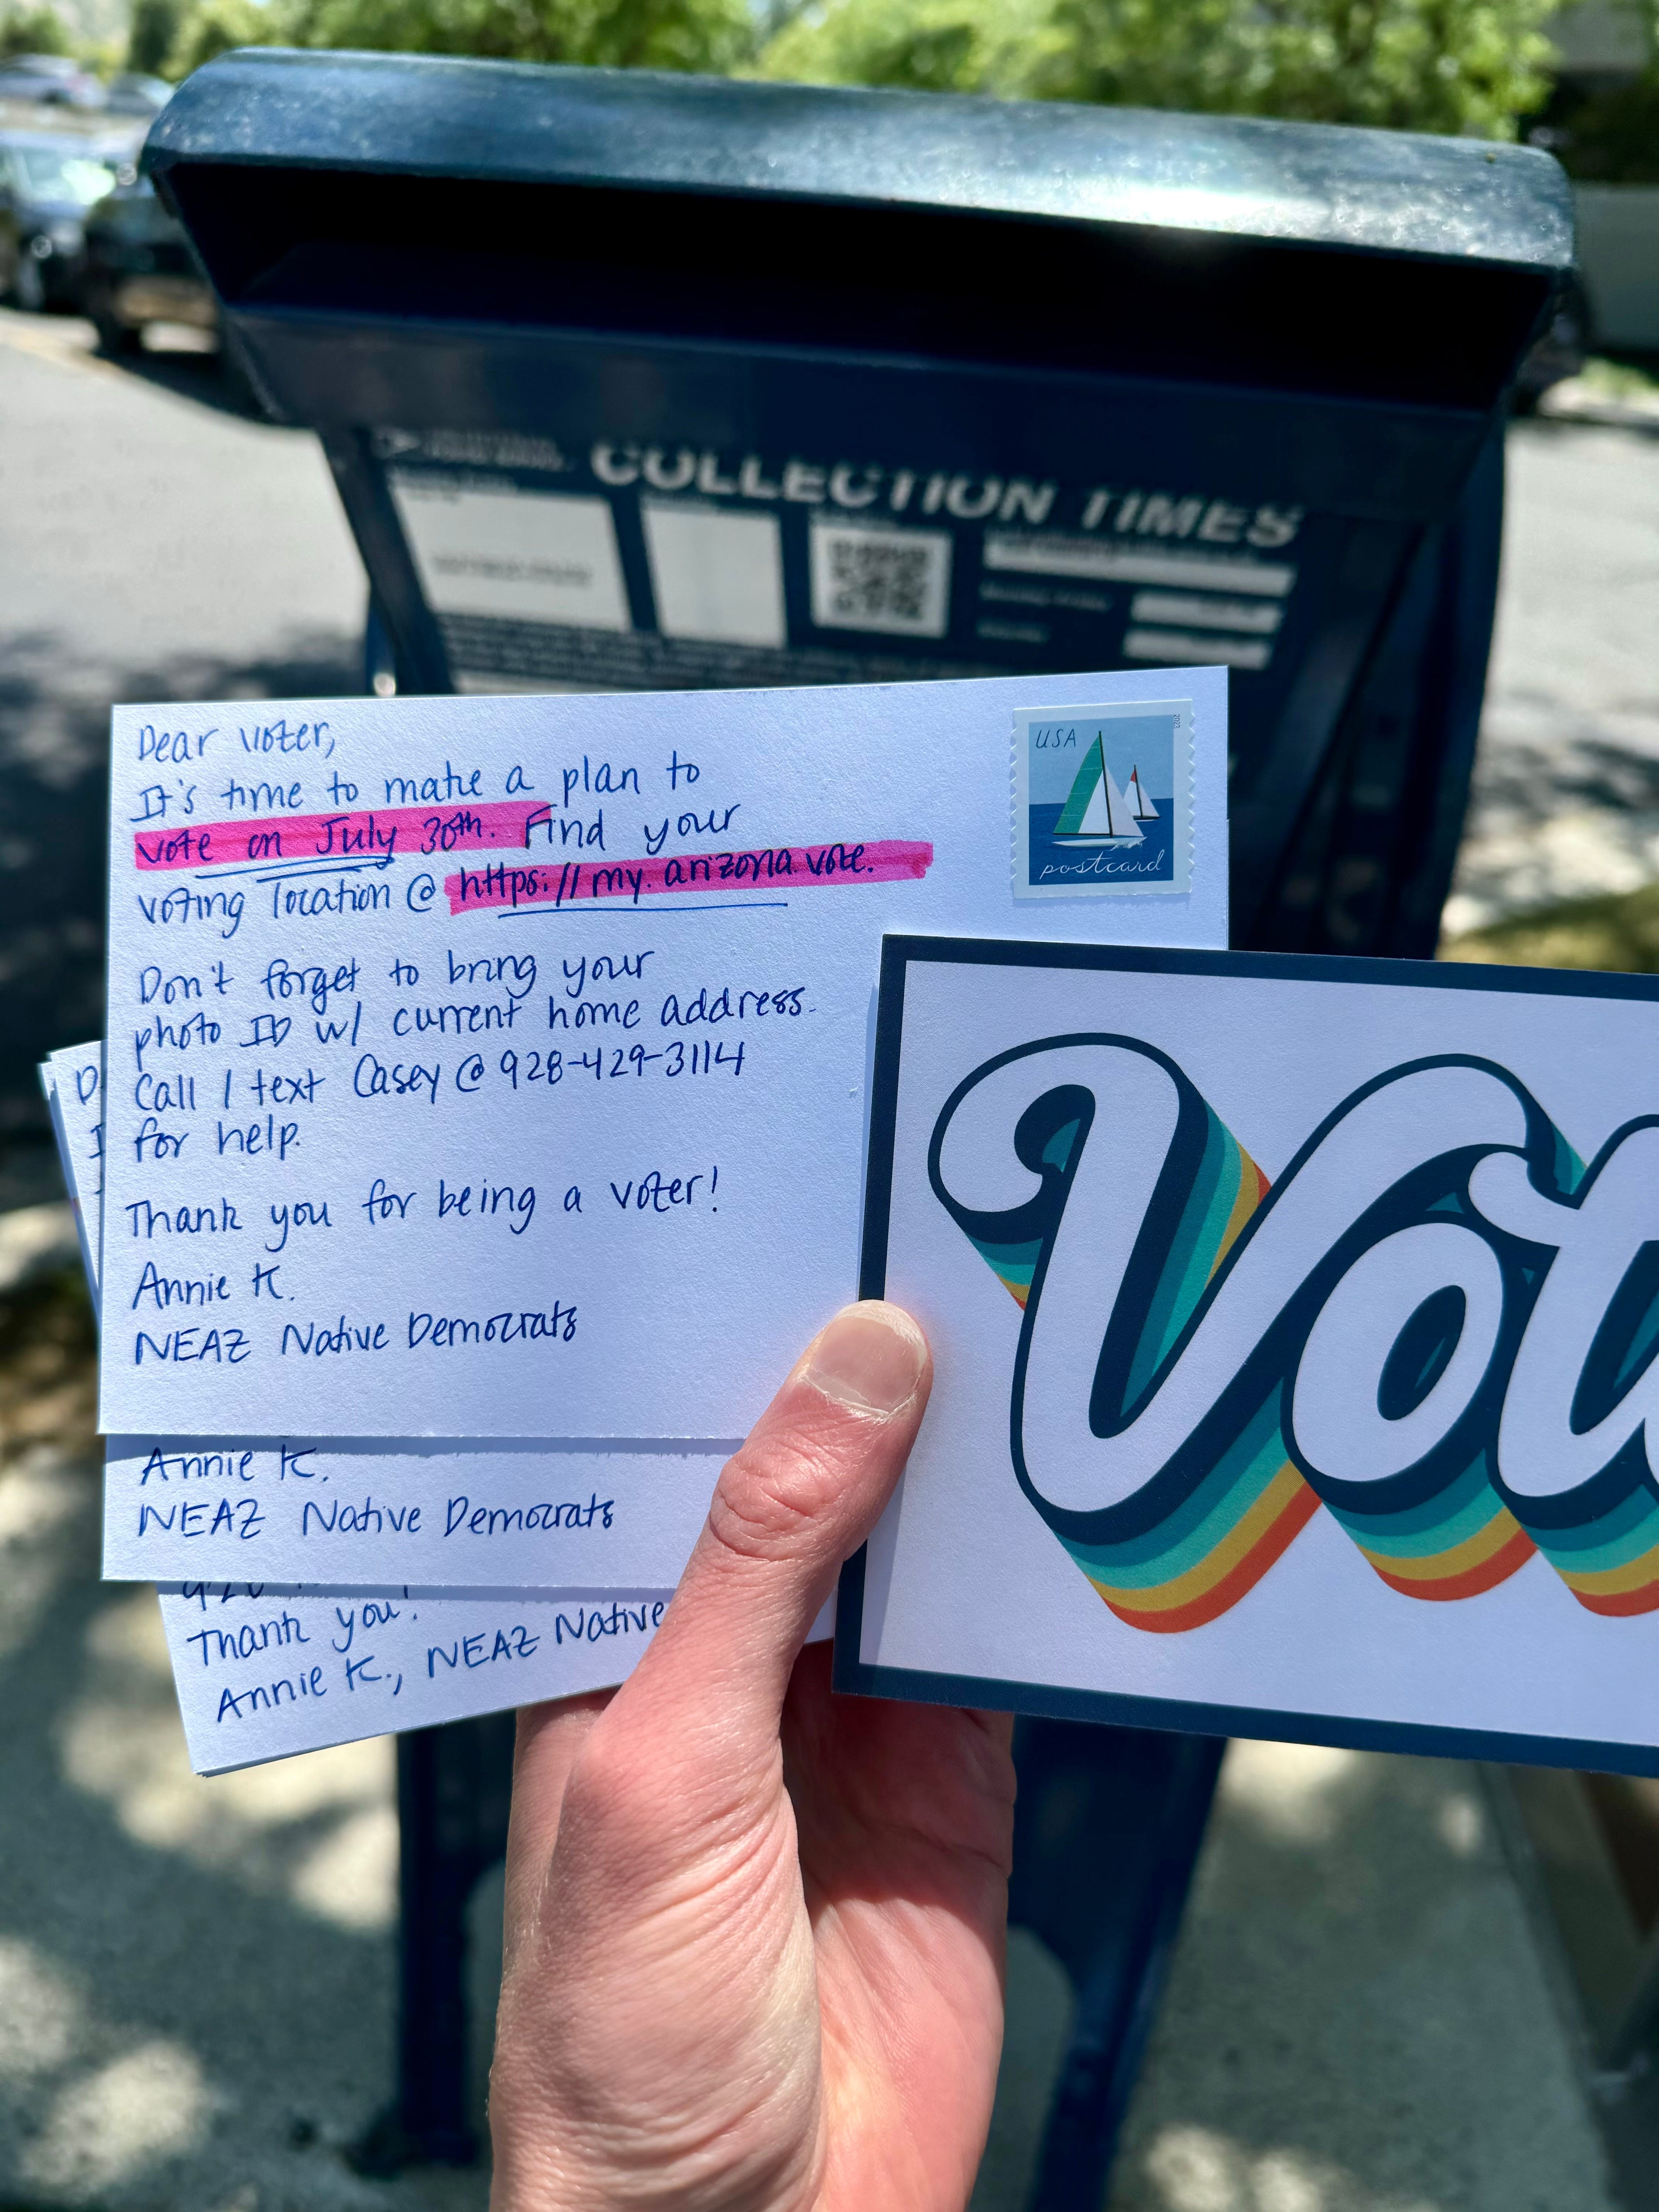 COLLECTION TIMES
Dear voter,
It's time to make a plan to
vote on July 30th. Find your
voting location @ https://my.arizona.vote.
Don't forget to bring your
photo ID w/ current home address.
Call / text Casey @ 928-429-3114
for help.
Thank you for being a voter!
Annie K.
NEAZ Native Democrats
USA
2022
postcard
D
I
Annie K.
NEAZ Native Democrats
Thank you!
Annie K., NEAZ Native
Vot